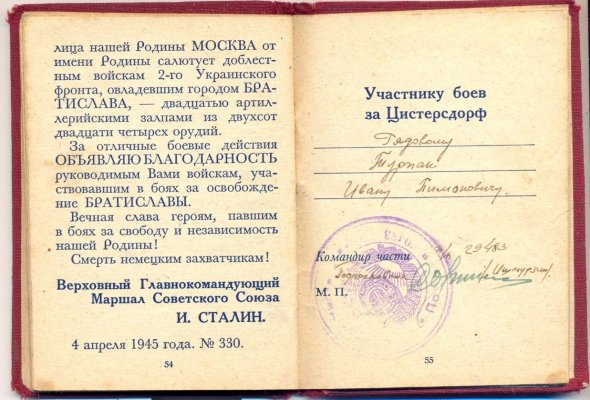 лица нашей Родины МОСКВА от
имени Родины салютует доблест-
ным войскам 2-го Украинского
фронта, овладевшим городом БРА-
ТИСЛАВА, — двадцатью артил-
лерийскими залпами из двухсот
двадцати четырех орудий.
За отличные боевые действия
ОБЪЯВЛЯЮ БЛАГОДАРНОСТЬ
руководимым Вами войскам, уча-
ствовавшим в боях за освобожде-
ние БРАТИСЛАВЫ.
Вечная слава героям, павшим
в боях за свободу и независимость
нашей Родины!
Смерть немецким захватчикам!
Верховный Главнокомандующий
Маршал Советского Союза
И. СТАЛИН.
4 апреля 1945 года. № 330.
54
Участнику боев
за Цистерсдорф
Рядовому
Ивану
Командир части
п/п 29483
Подполковник
М. П.
55